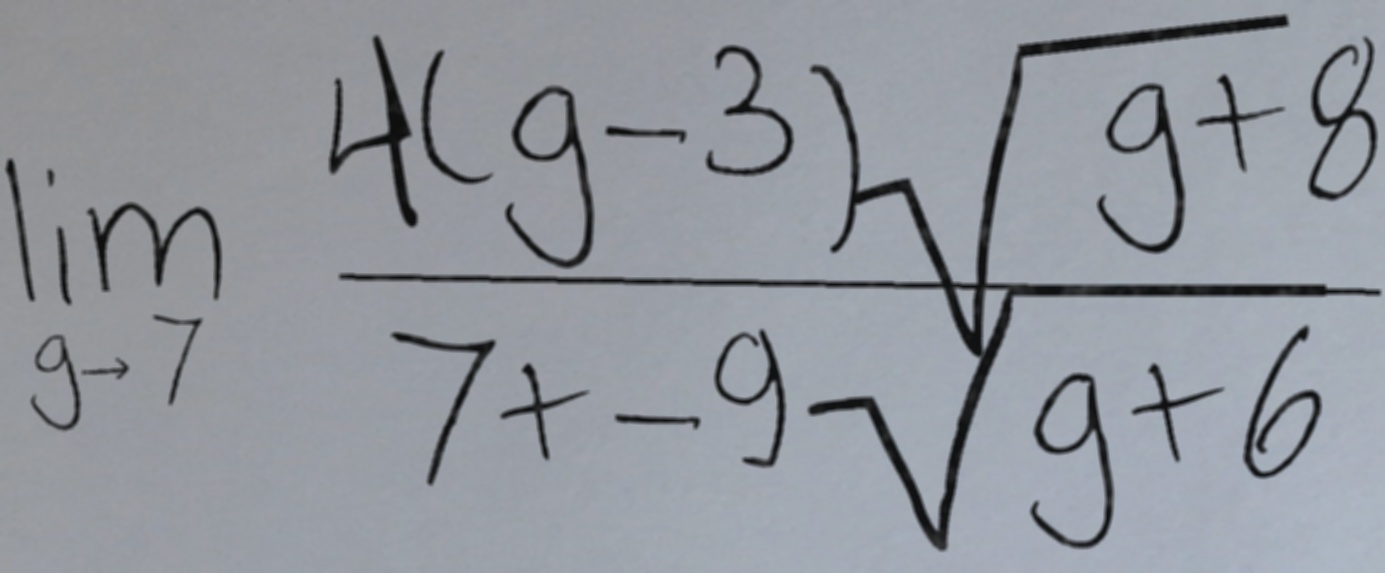 \lim_{g \to 7} \frac{4(g-3)\sqrt{g+8}}{7+-9\sqrt{g+6}}